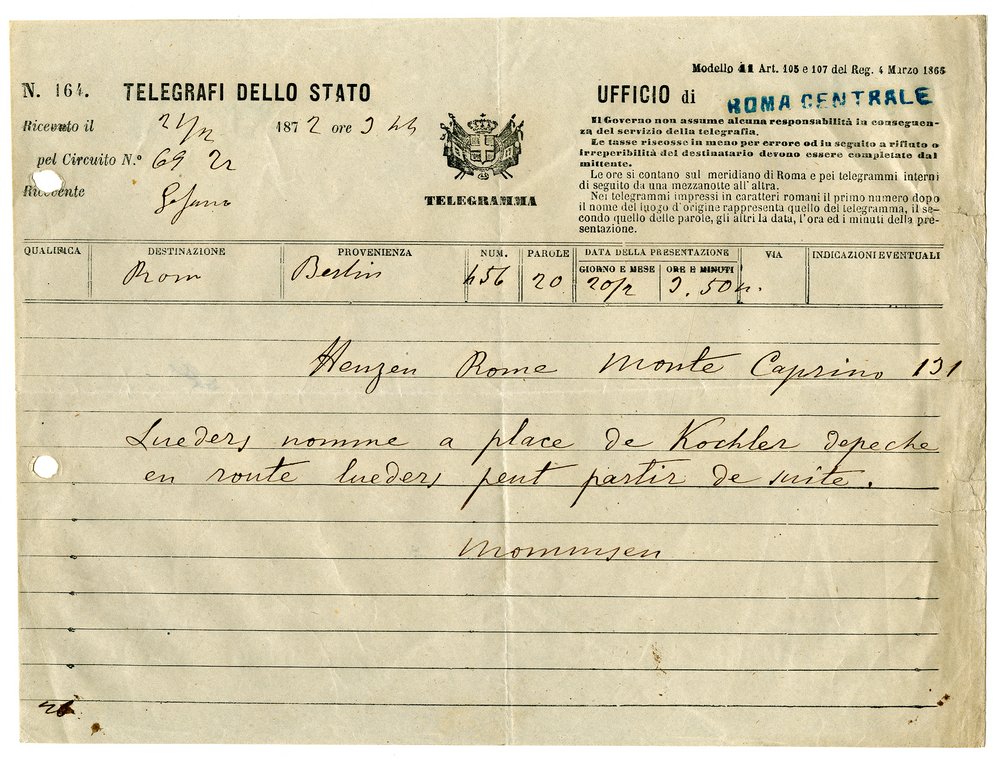 Modello 11 Art. 105 e 107 del Reg. 4 Marzo 1865
N. 164. TELEGRAFI DELLO STATO
UFFICIO di ROMA CENTRALE
Ricevuto il 21/2 1872 ore 3 44
pel Circuito N.º 69 22
Ricevente
TELEGRAMMA
Il Governo non assume alcuna responsabilità in conseguen-
za del servizio della telegrafia.
Le tasse riscosse in meno per errore od in seguito a rifiuto o
irreperibilità del destinatario devono essere completate dal
mittente.
Le ore si contano sul meridiano di Roma e pei telegrammi interni
di seguito da una mezzanotte all'altra.
Nei telegrammi impressi in caratteri romani il primo numero dopo
il nome del luogo d'origine rappresenta quello del telegramma, il se-
condo quello delle parole, gli altri la data, l'ora ed i minuti della pre-
sentazione.
QUALIFICA DESTINAZIONE PROVENIENZA NUM. PAROLE DATA DELLA PRESENTAZIONE VIA INDICAZIONI EVENTUALI
GIORNO E MESE ORE E MINUTI
Rom Berlin 456 20 20/2 3.50
Henzen Rome Monte Caprino 131
Lueders nomme a place de Kochler depeche
en route lueders peut partir de suite.
Mommsen